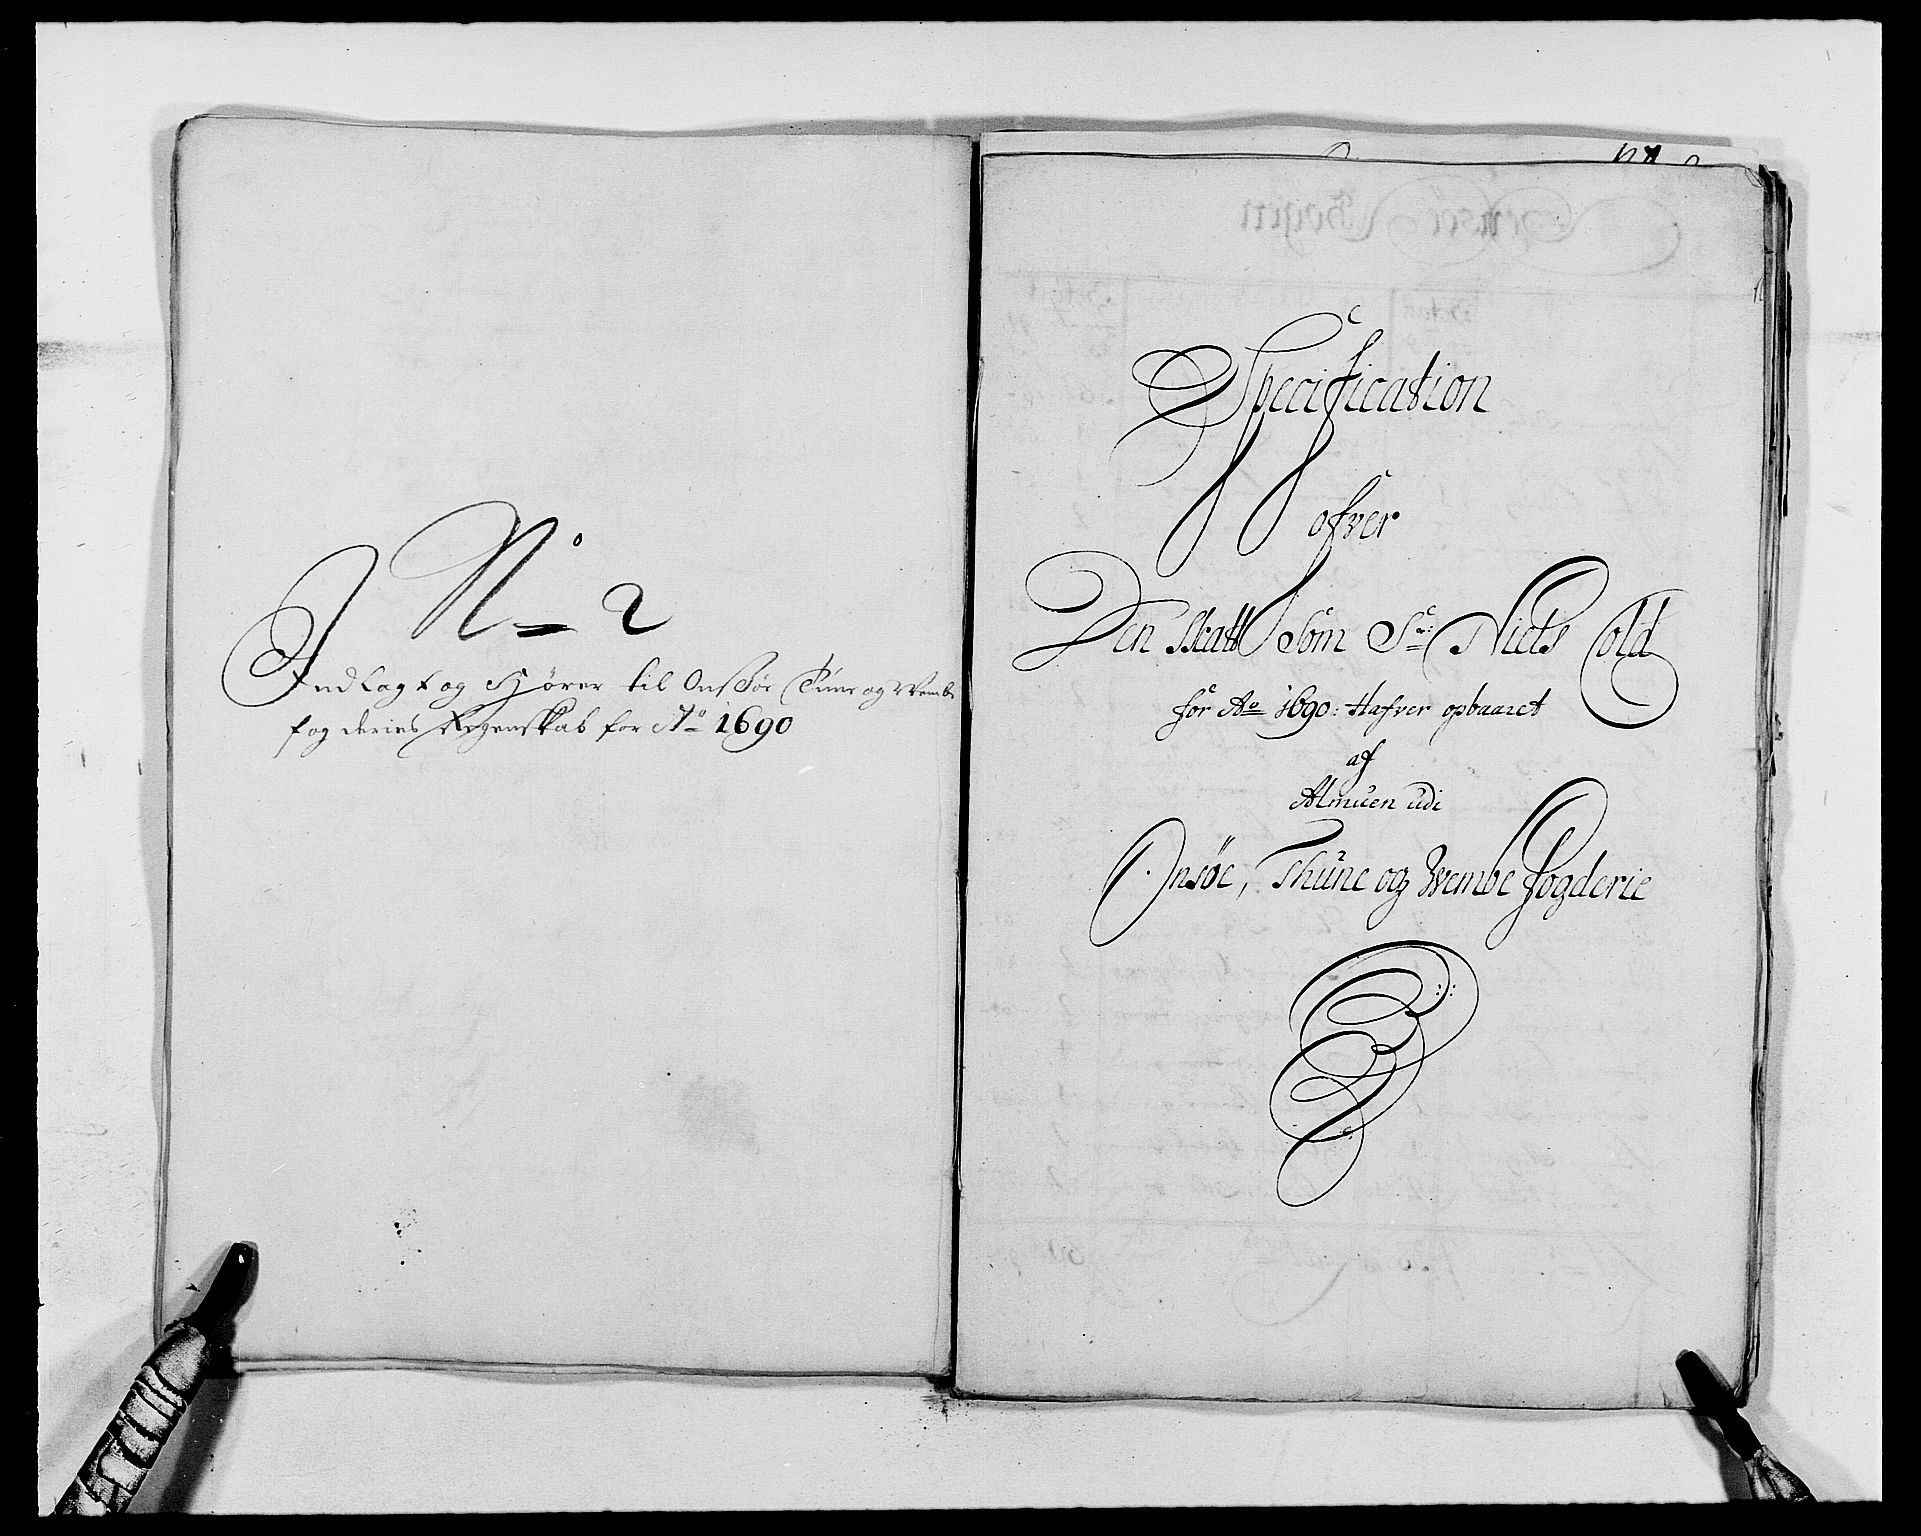 No 2
Indlagt og Hjörer til Onsöe Tune og Wembe
fogderies Regenskab for Ao 1690
Specification
ofver
Den Skatt Som Sr: Niels Cold
for Ao 1690: Hafver opbaaret
af
Almuen udi
Onsöe, Thune og Wembe fogderie